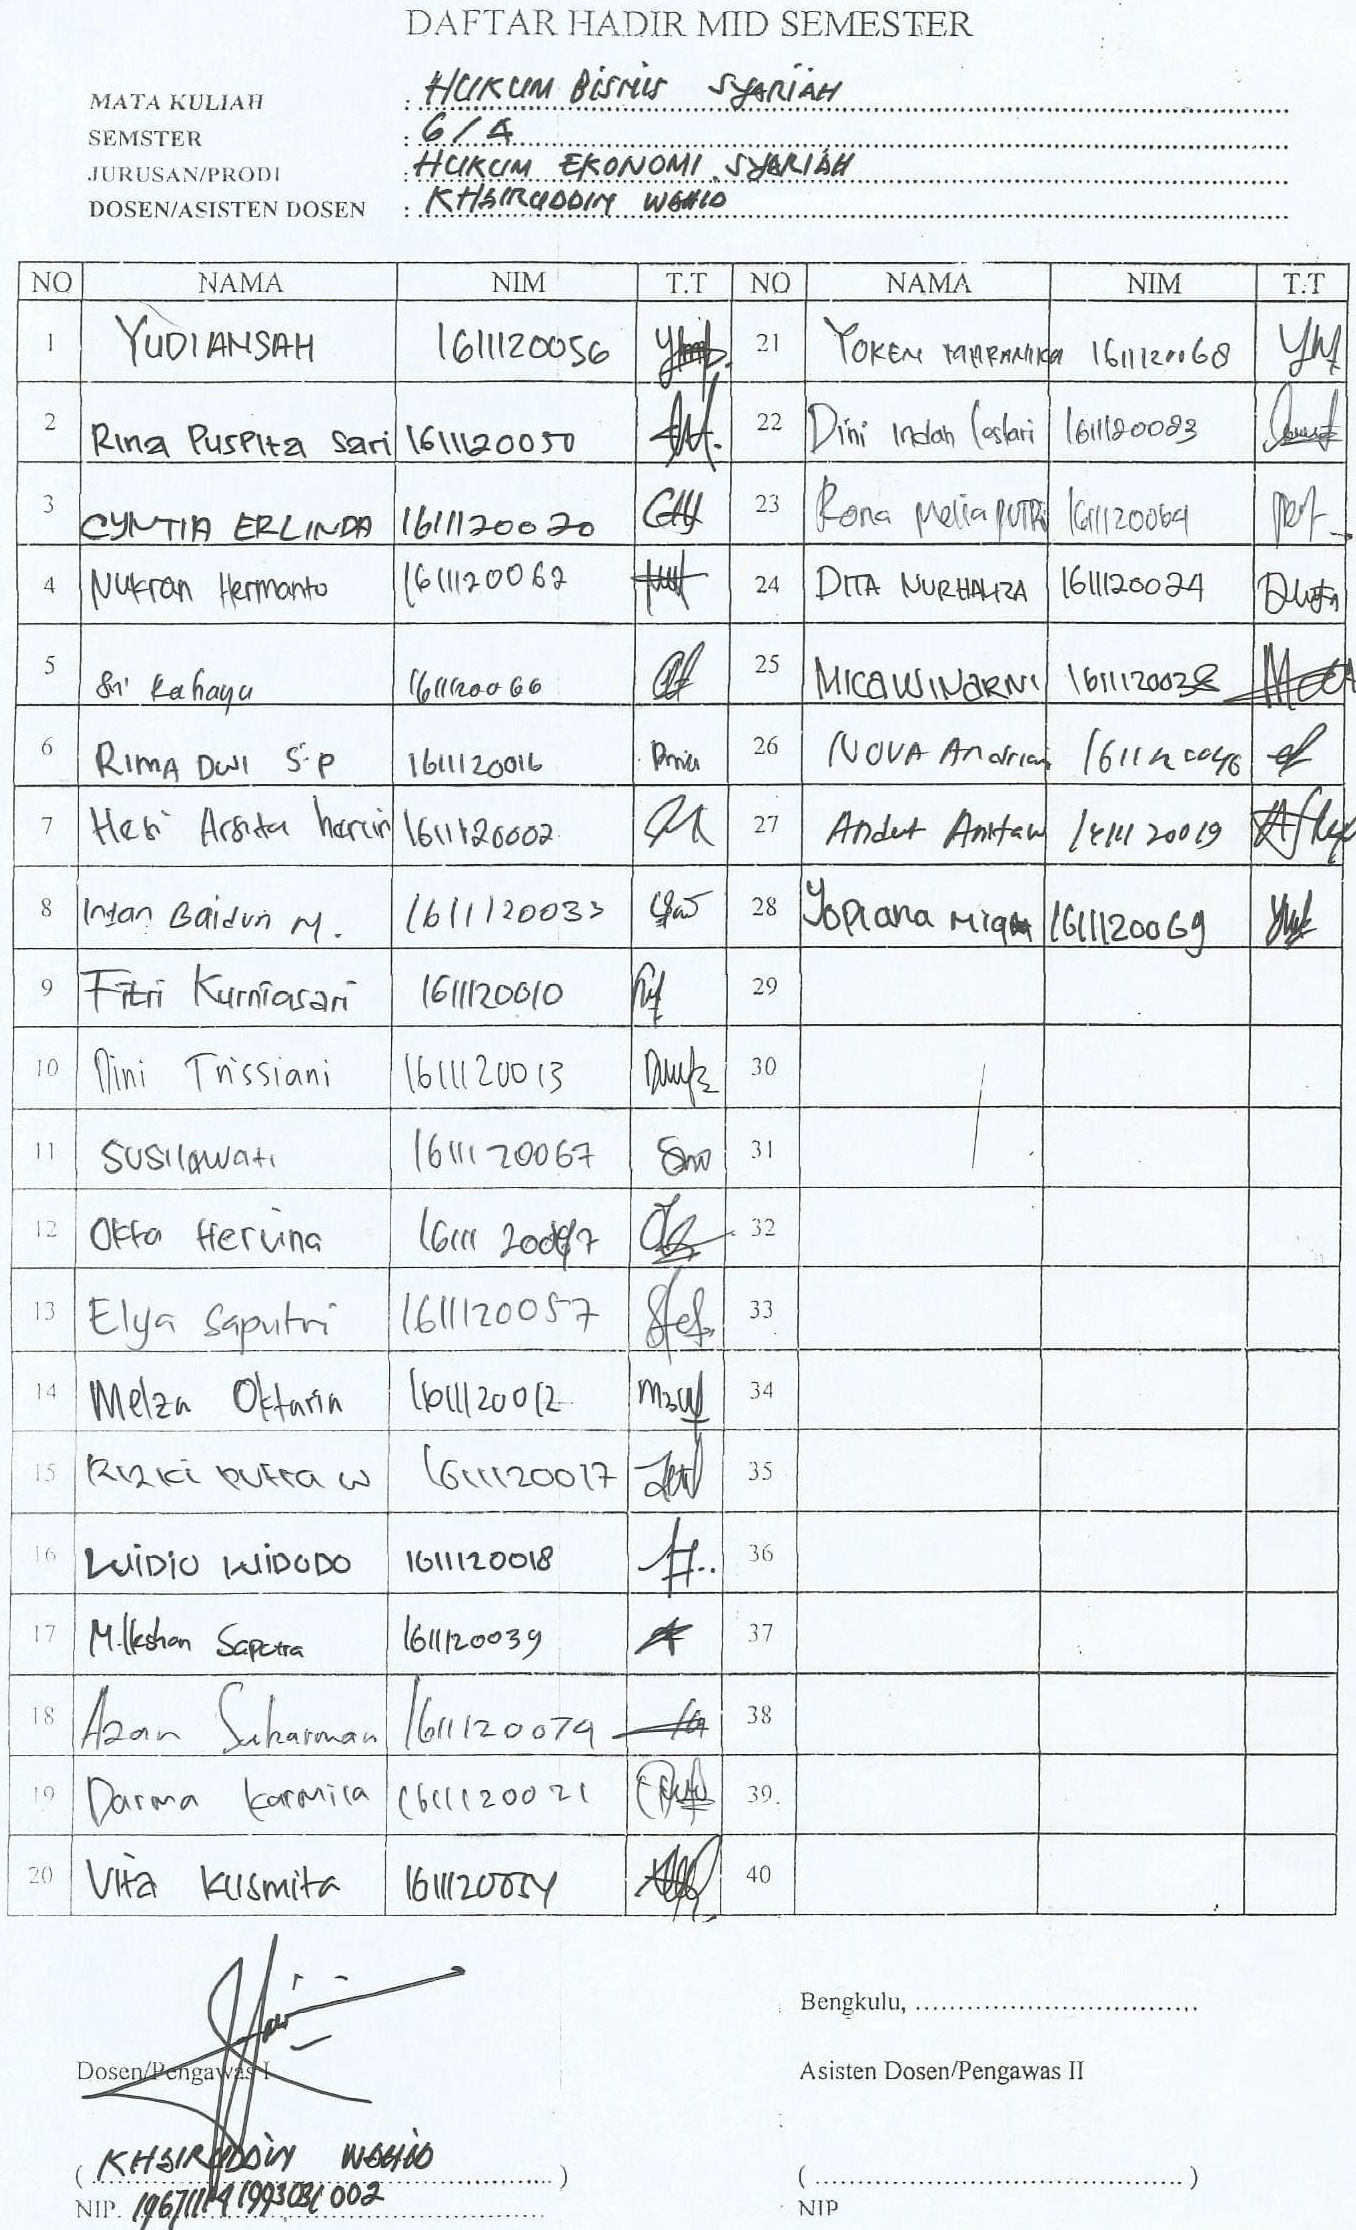 DAFTAR HADIR MID SEMESTER
MATA KULIAH : HUKUM BISNIS SYARIAH
SEMSTER : 6 / A
JURUSAN/PRODI : HUKUM EKONOMI SYARIAH
DOSEN/ASISTEN DOSEN : KHAIRUDDIN WAHID
NO NAMA NIM T.T NO NAMA NIM T.T
1 YUDIANSAH 1611120056 21 YOKEN 1611120068
2 Rina Puspita Sari 1611120050 22 Dini Indah Lestari 1611120023
3 CYNTIA ERLINDA 1611120020 23 Rona Melia PUTRI 1611120064
4 Nukran Hermanto 1611120062 24 DITA NURHALIZA 1611120024
5 Sri Rahayu 1611120066 25 MICA WINARNI
6 RIMA DWI S.P 1611120016 26 NOVA Andriani
7 Hesi Arsita 1611120002 27
8 Intan Baidun M. 1611120033 28 Yopiana 1611120069
9 Fitri Kurniasari 1611120010 29
10 Dini Trissiani 1611120013 30
11 SUSILAWATI 1611120067 31
12 Okta Hervina 32
13 Elya Saputri 1611120057 33
14 Melza Oktarin 1611120012 34
15 Rizki putra w 1611120017 35
16 WIDIO WIDODO 1611120018 36
17 M.Ikshan Saputra 1611120039 37
18 Azan Suharman 1611120074 38
19 Darma Karmila 1611120021 39.
20 Vita Kusmita 1611120054 40
Bengkulu, ................................
Dosen/Pengawas I Asisten Dosen/Pengawas II
( KHAIRUDDIN WAHID ) ( ................................ )
NIP. 196711141993031002 NIP